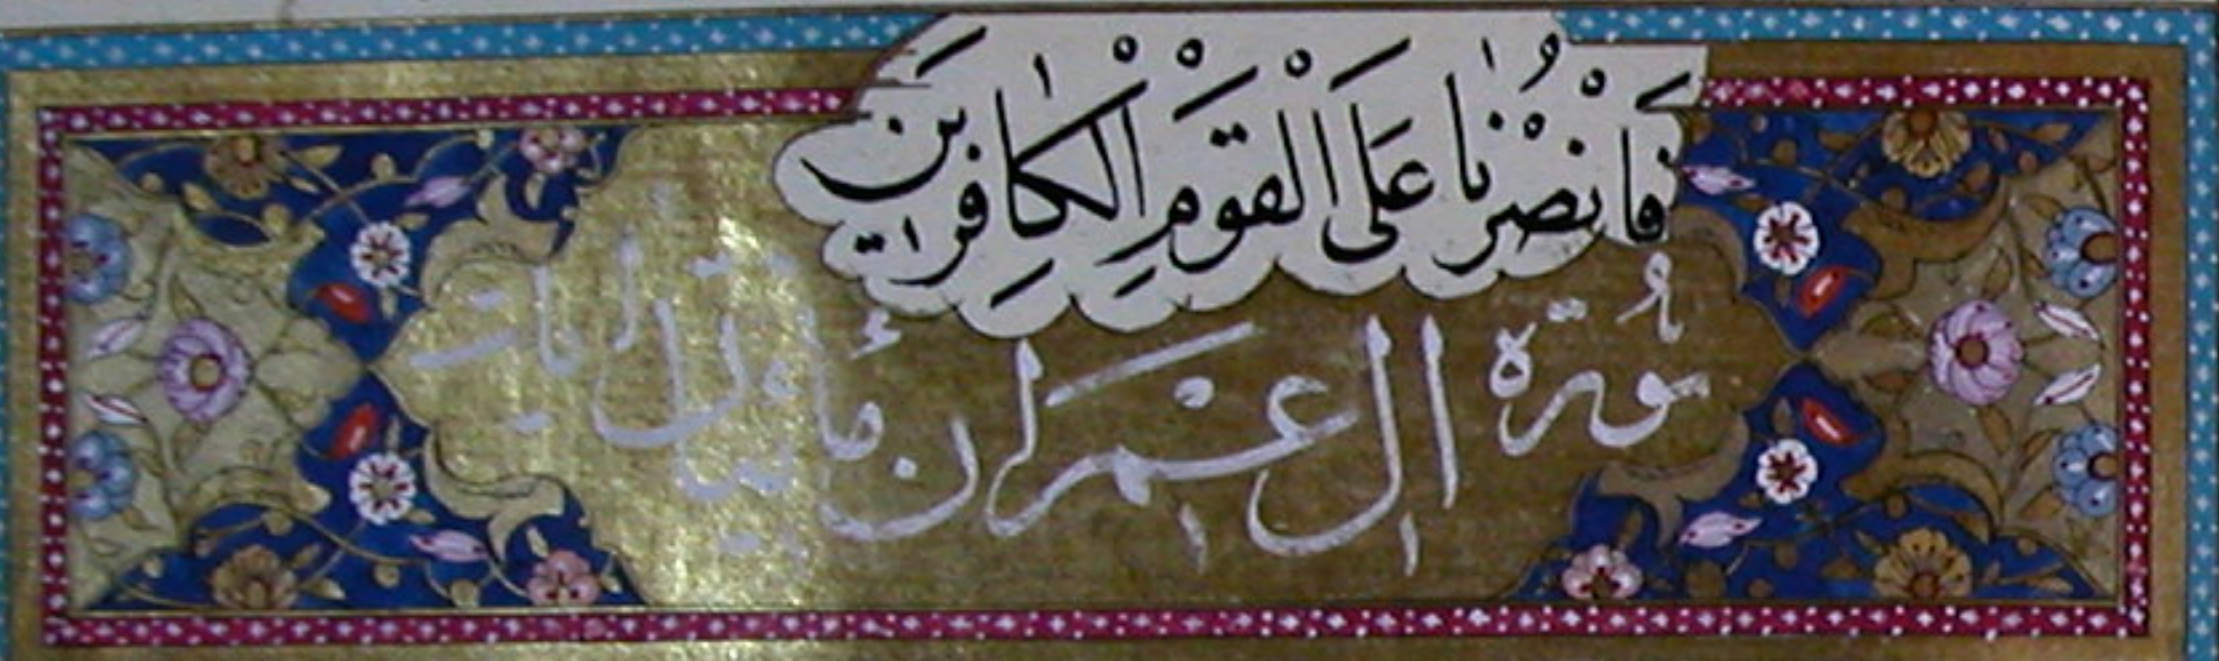 فَانْصُرْنَا عَلَى الْقَوْمِ الْكَافِرِينَ
سُورَةُ اٰلِ عِمْرٰن مائتا اٰيات